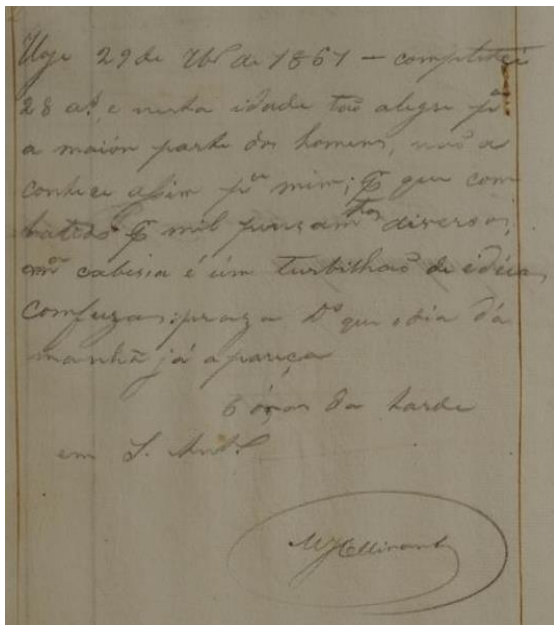 Hoje 29 de de 1861 — completei
28 a.ˢ, e nesta idade tão alegre pª
a maior parte dos homens, não a
conheci assim pª mim; que com
batido mil pensamᵗᵒˢ diversos,
cabesia é úm turbilhaõ de idéias
comfuzas: praza Dˢ que o dia dá
manhã já apareça
6 óras da tarde
em S. Antº